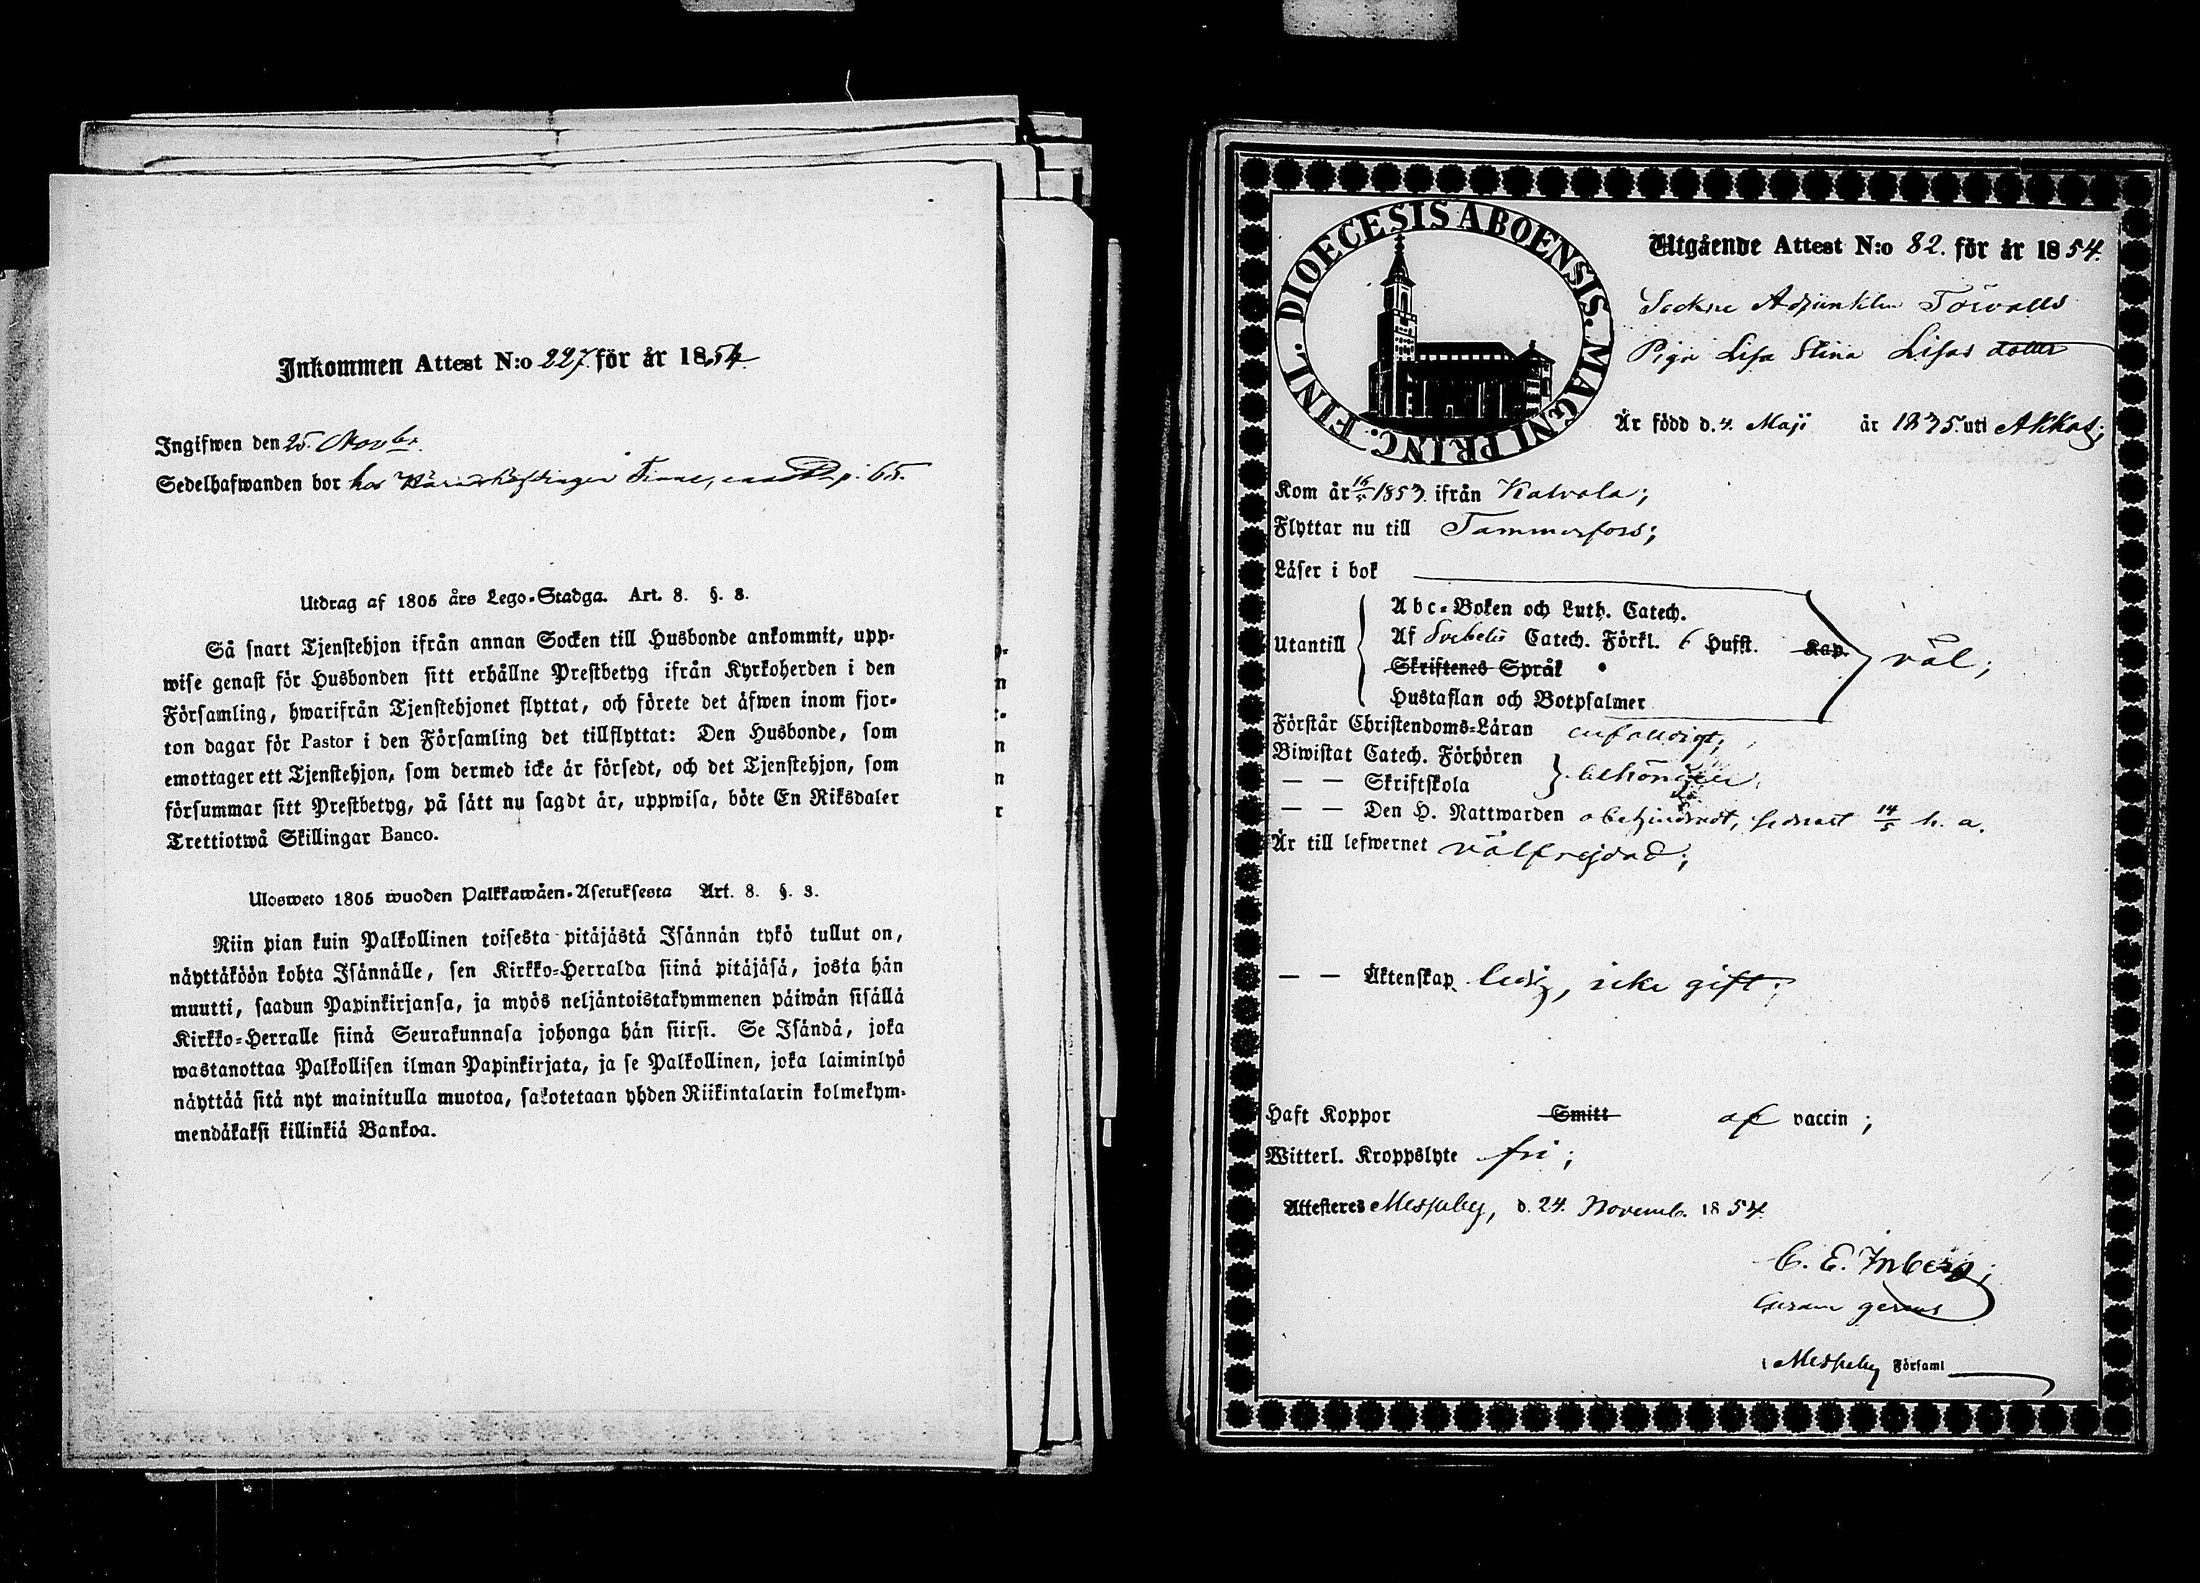 Inkommen Attest N:o 227 för år 1854.
Ingifwen den 25. Novbr.
Sedelhafwanden bor hos Häradshöfdingen p. 65.
Utdrag af 1805 års Lego-Stadga. Art. 8. §. 3.
Så snart Tjenstehjon ifrån annan Socken till Husbonde ankommit, upp-
wise genast för Husbonden sitt erhållne Prestbetyg ifrån Kyrkoherden i den
Församling, hwarifrån Tjenstehjonet flyttat, och förete det äfwen inom fjor-
ton dagar för Pastor i den Församling det tillflyttat: Den Husbonde, som
emottager ett Tjenstehjon, som dermed icke är försedt, och det Tjenstehjon, som
försummar sitt Prestbetyg, på sätt nu sagdt är, uppwisa, böte En Riksdaler
Trettiotwå Skillingar Banco.
Ulosweto 1805 wuoden Palkkawäen-Asetuksesta Art. 8. §. 3.
Niin pian kuin Palkollinen toisesta pitäjästä Isännän tykö tullut on,
näyttäköön kohta Isännälle, sen Kirkko-Herralda siinä pitäjäsä, josta hän
muutti, saadun Papinkirjansa, ja myös neljäntoistakymmenen päiwän sisällä
Kirkko-Herralle siinä Seurakunnasa johonga hän siirsi. Se Isändä, joka
wastanottaa Palkollisen ilman Papinkirjata, ja se Palkollinen, joka laiminlyö
näyttää sitä nyt mainitulla muotoa, sakotetaan yhden Riikintalarin kolmekym-
mendäkaksi killinkiä Bankoa.
DIOECESIS ABOENSIS. MAGNI PRINC. FINL.
Utgående Attest N:o 82. för år 1854.
Sockne Adjunkten Törvalls
Pigo Lisa Stina Lisas dotter
Är född d. 4. Maji år 1835. uti Akkas;
Kom år 16/5 1853. ifrån Kalvola;
Flyttar nu till Tammerfors;
Läser i bok
Abc-Boken och Luth. Catech.
Utantill Af Svebelii Catech. Förkl. 6 Hufst. Kap. väl;
Skriftenes Språk
Hustaflan och Botpsalmer
Förstår Christendoms-Läran enfaldigt;
Biwistat Catech. Förhören
— — Skriftskola behörigen;
— — Den H. Nattwarden obehindradt, sednast 14/5 h. a.
Är till lefwernet välfrejdad;
— — Äktenskap ledig, icke gift;
Haft Koppor Smitt af vaccin;
Witterl. Kroppslyte fri;
Attesteres Messuby, d. 24. Novemb. 1854.
C. E. Inberg;
Curam gerens
i Messuby Församl